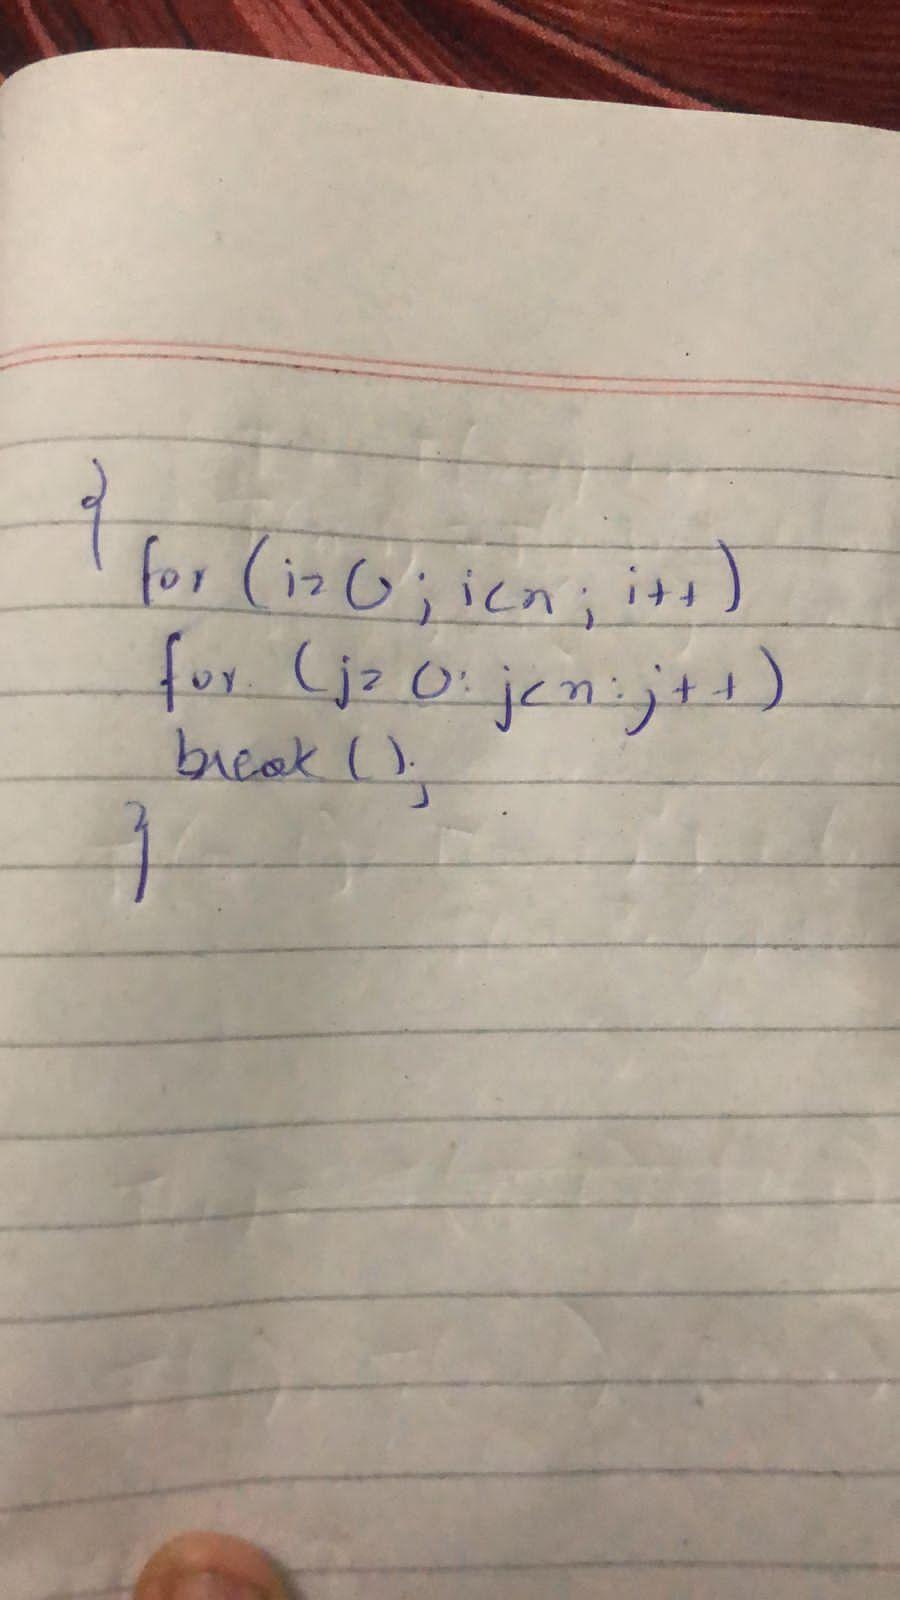 {
for (i=0; i<n; i++)
for (j=0: j<n: j++)
break ();
}